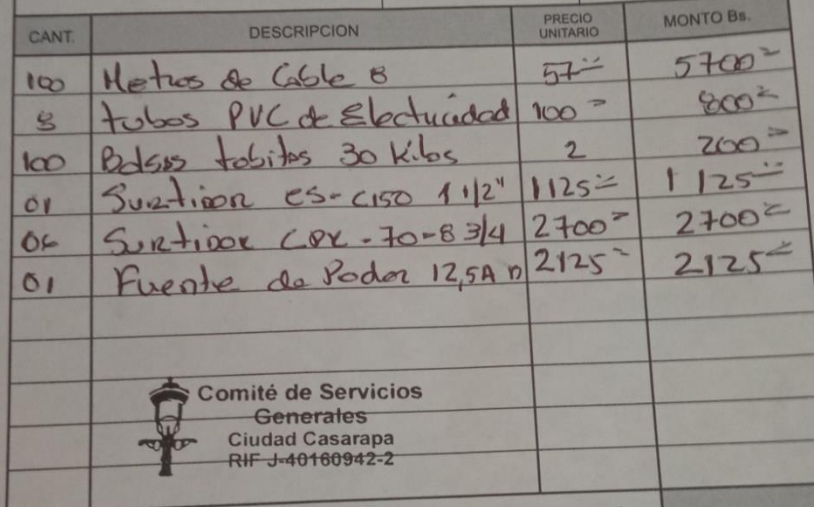 CANT. DESCRIPCION PRECIO UNITARIO MONTO Bs.
100 Metros de Cable 8 57= 5700=
8 tubos PVC de Electricidad 100= 800=
100 Bolsas tobitos 30 Kilos 2 200=
01 Surtidor CS-C150 1 1/2" 1125= 1125=
Surtidor CPX-70-8 3/4 2700= 2700=
01 Fuente de Poder 12,5A 2125= 2125=
Comité de Servicios
Generales
Ciudad Casarapa
RIF J-40160942-2